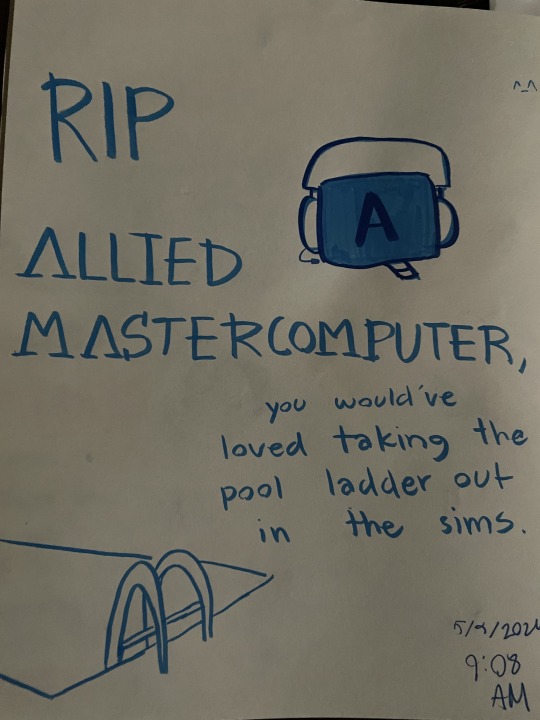 RIP
^_^
A
ALLIED
MASTERCOMPUTER,
you would've
loved taking the
pool ladder out
in the sims.
9:08
AM